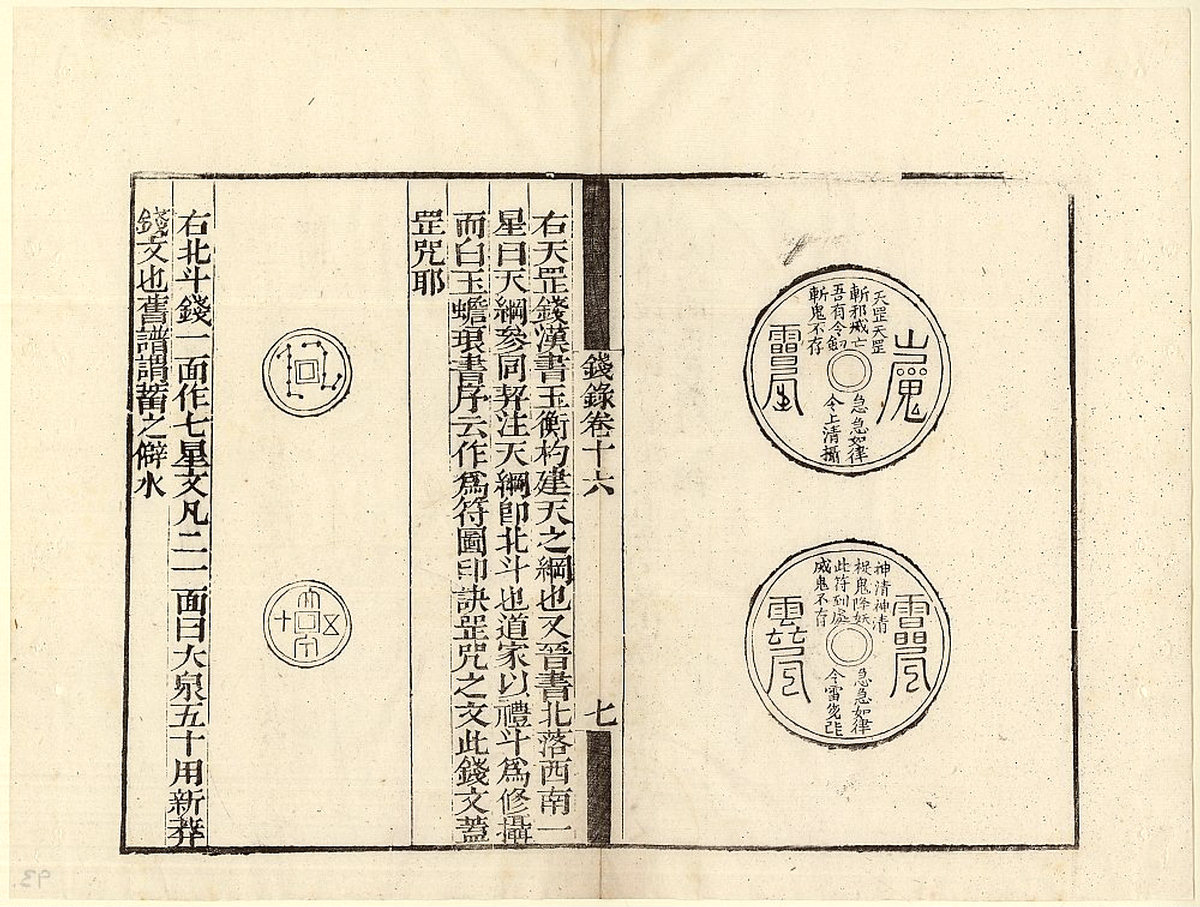 天罡天罡
斬邪滅亡
吾有令劍
斬鬼不存
急急如律
令上清攝
神清神清
捉鬼降妖
此符到處
滅鬼不存
急急如律
令雷
錢錄卷十六
七
右天罡錢漢書玉衡杓建天之綱也又晉書北落西南一
星曰天綱參同契注天綱卽北斗也道家以禮斗爲修攝
而白玉蟾琅書序云作爲符圖印訣罡咒之文此錢文蓋
罡咒耶
大泉五十
右北斗錢一面作七星文凡二一面曰大泉五十用新莽
錢文也舊譜謂蓄之僻水
93.